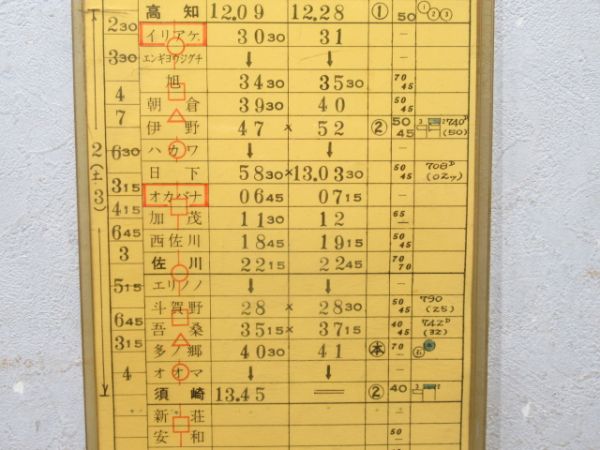 高知 12.09 12.28 ① 50 ①②③
2 30
イリアケ 30 30 31 —
3 30
エンギヨウジグチ ↓ ↓
旭 34 30 35 30 70 45
4
朝倉 39 30 40 50 45
7
伊野 47 × 52 ② 50 45 3 740D (50)
ハカワ ↓ ↓
6 30
日下 58 30 × 13.03 30 50 45 708D (02ッ)
3 15
オカバナ 06 45 07 15 —
4 15
加茂 11 30 12 65 —
6 45
西佐川 18 45 19 15 50 45
3
佐川 22 15 22 45 70 70
エリノノ ↓ ↓
5 15
斗賀野 28 × 28 30 50 45 790 (25)
6 45
吾桑 35 15 × 37 15 40 45 742D (32)
3 15
多ノ郷 40 30 41 本 70 —
オオマ ↓ ↓
4
須崎 13.45 ═ ② 40 3
新荘
安和 50 —
2(±3)